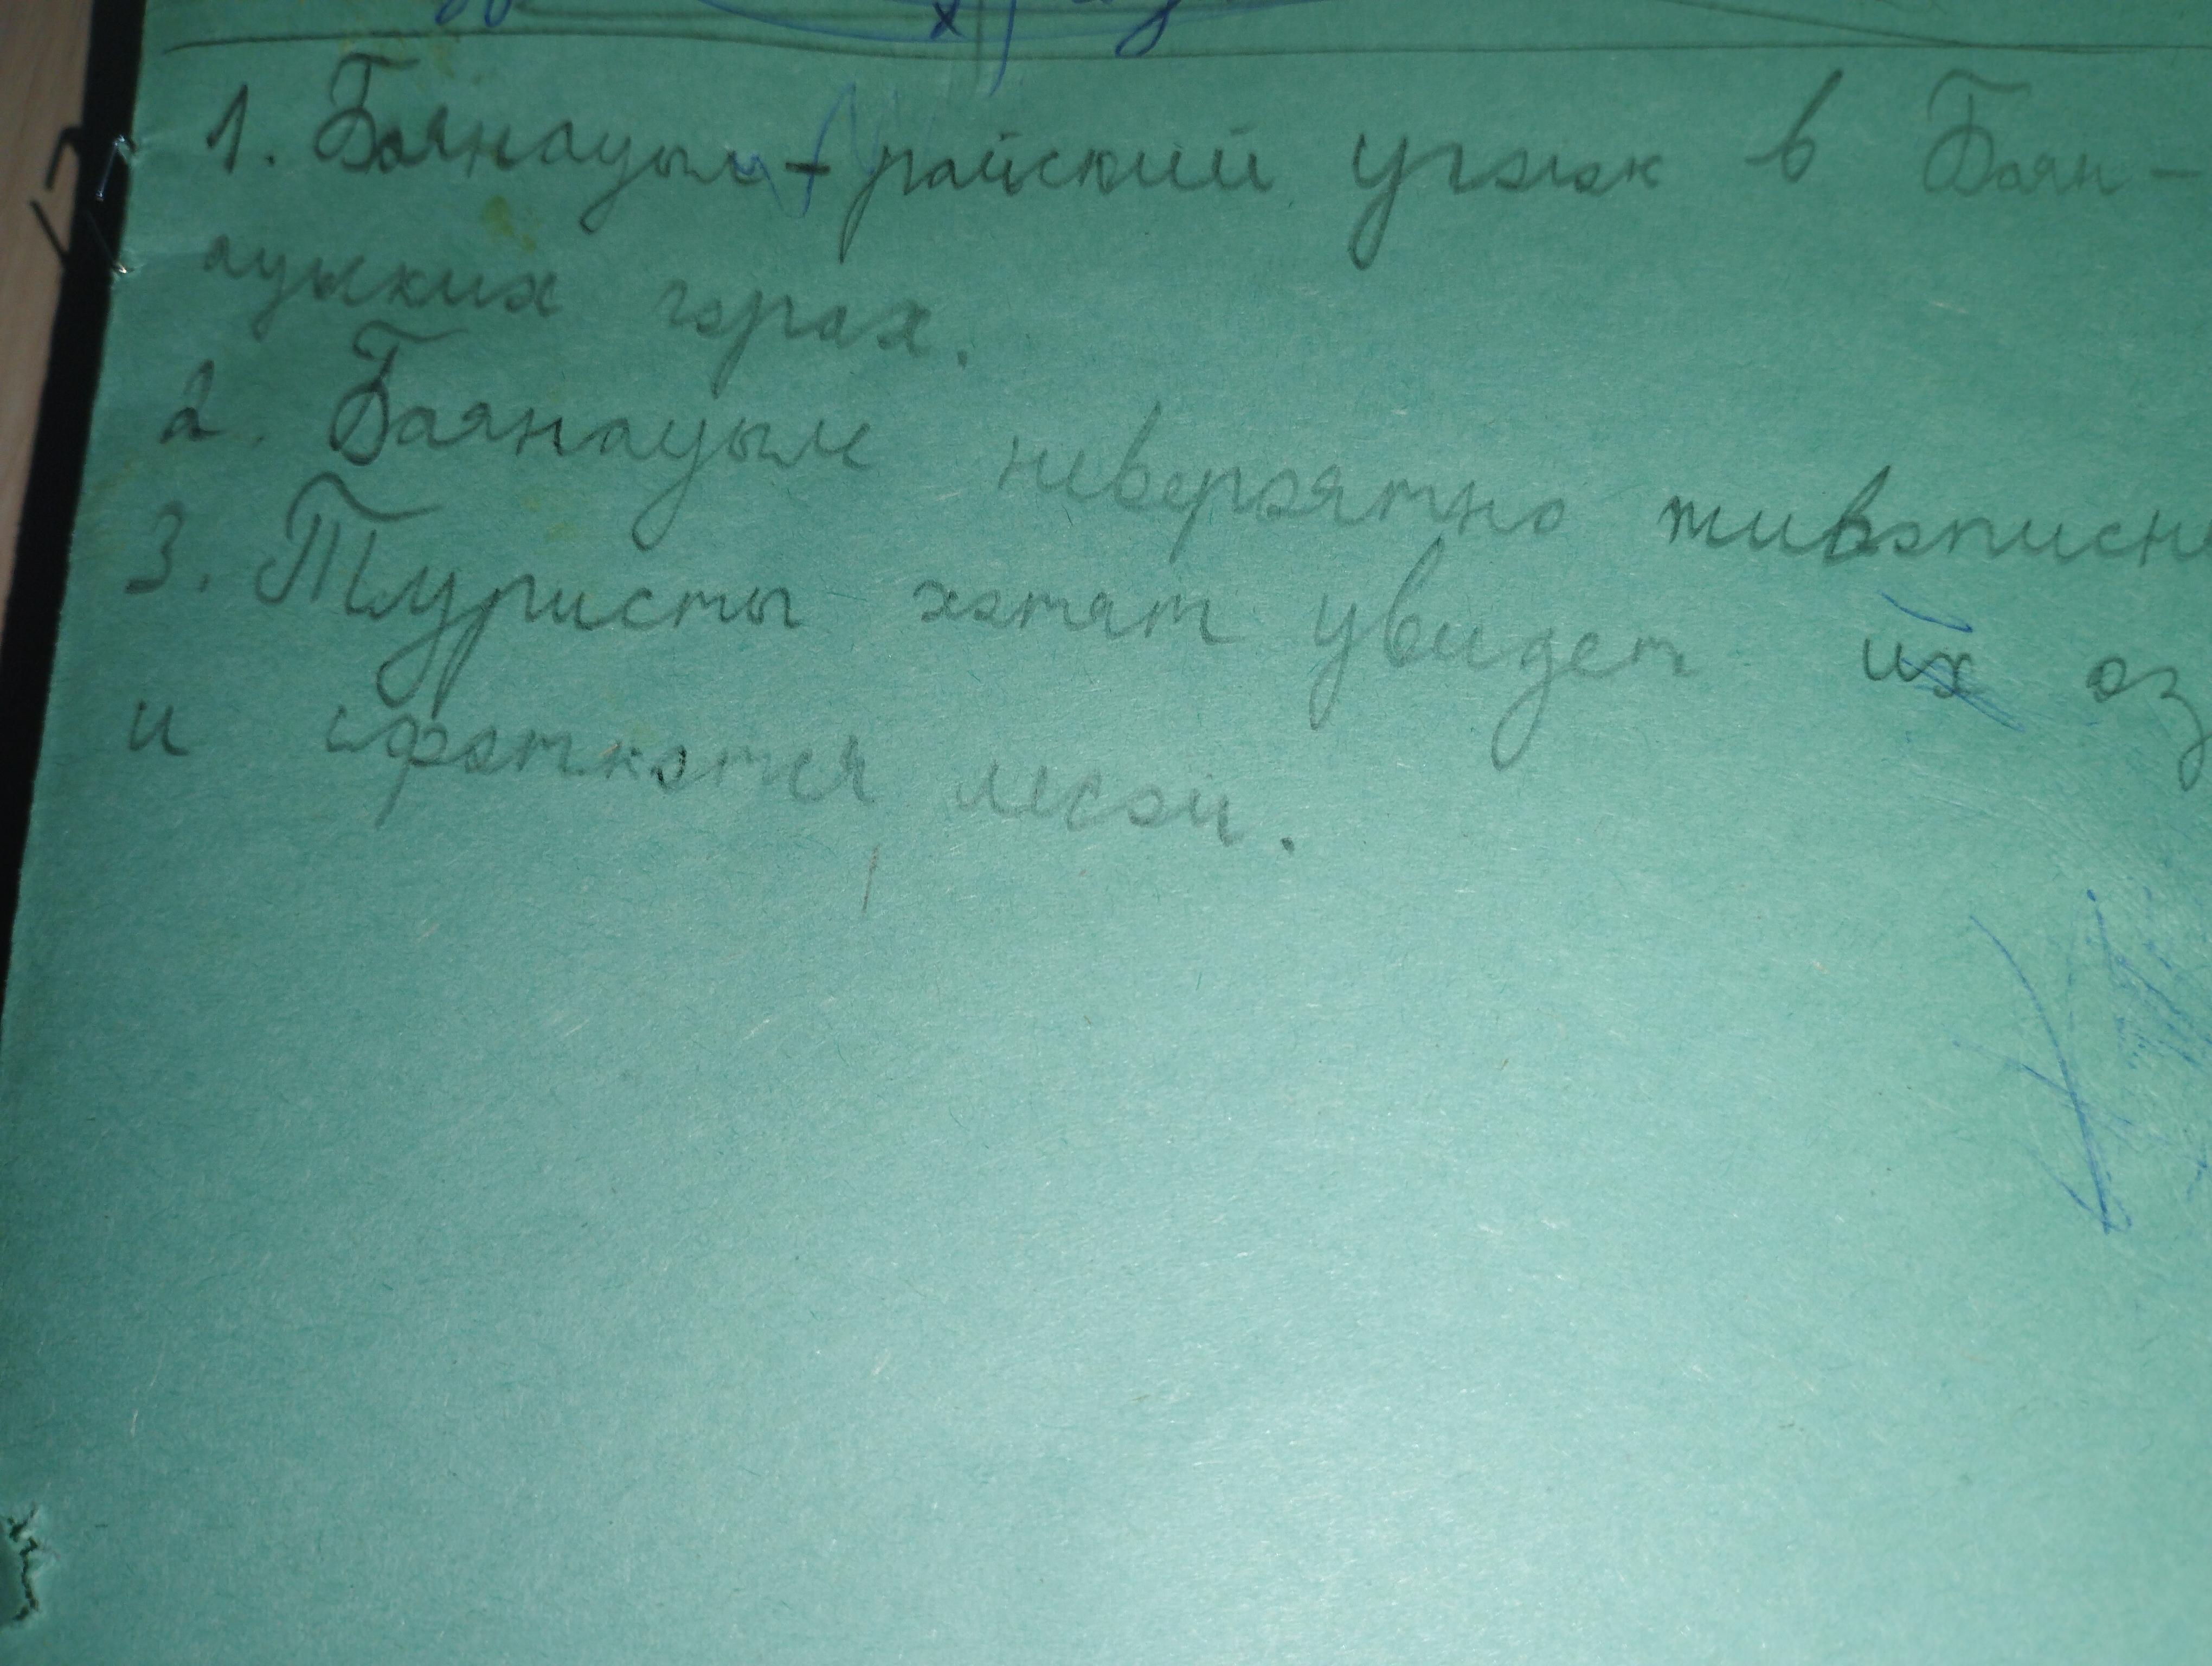 1. Баянауыл - райский уголок в Баян-
ауских горах.
2. Баянауыл невероятно живописн
3. Туристы хотят увидет их оз
и